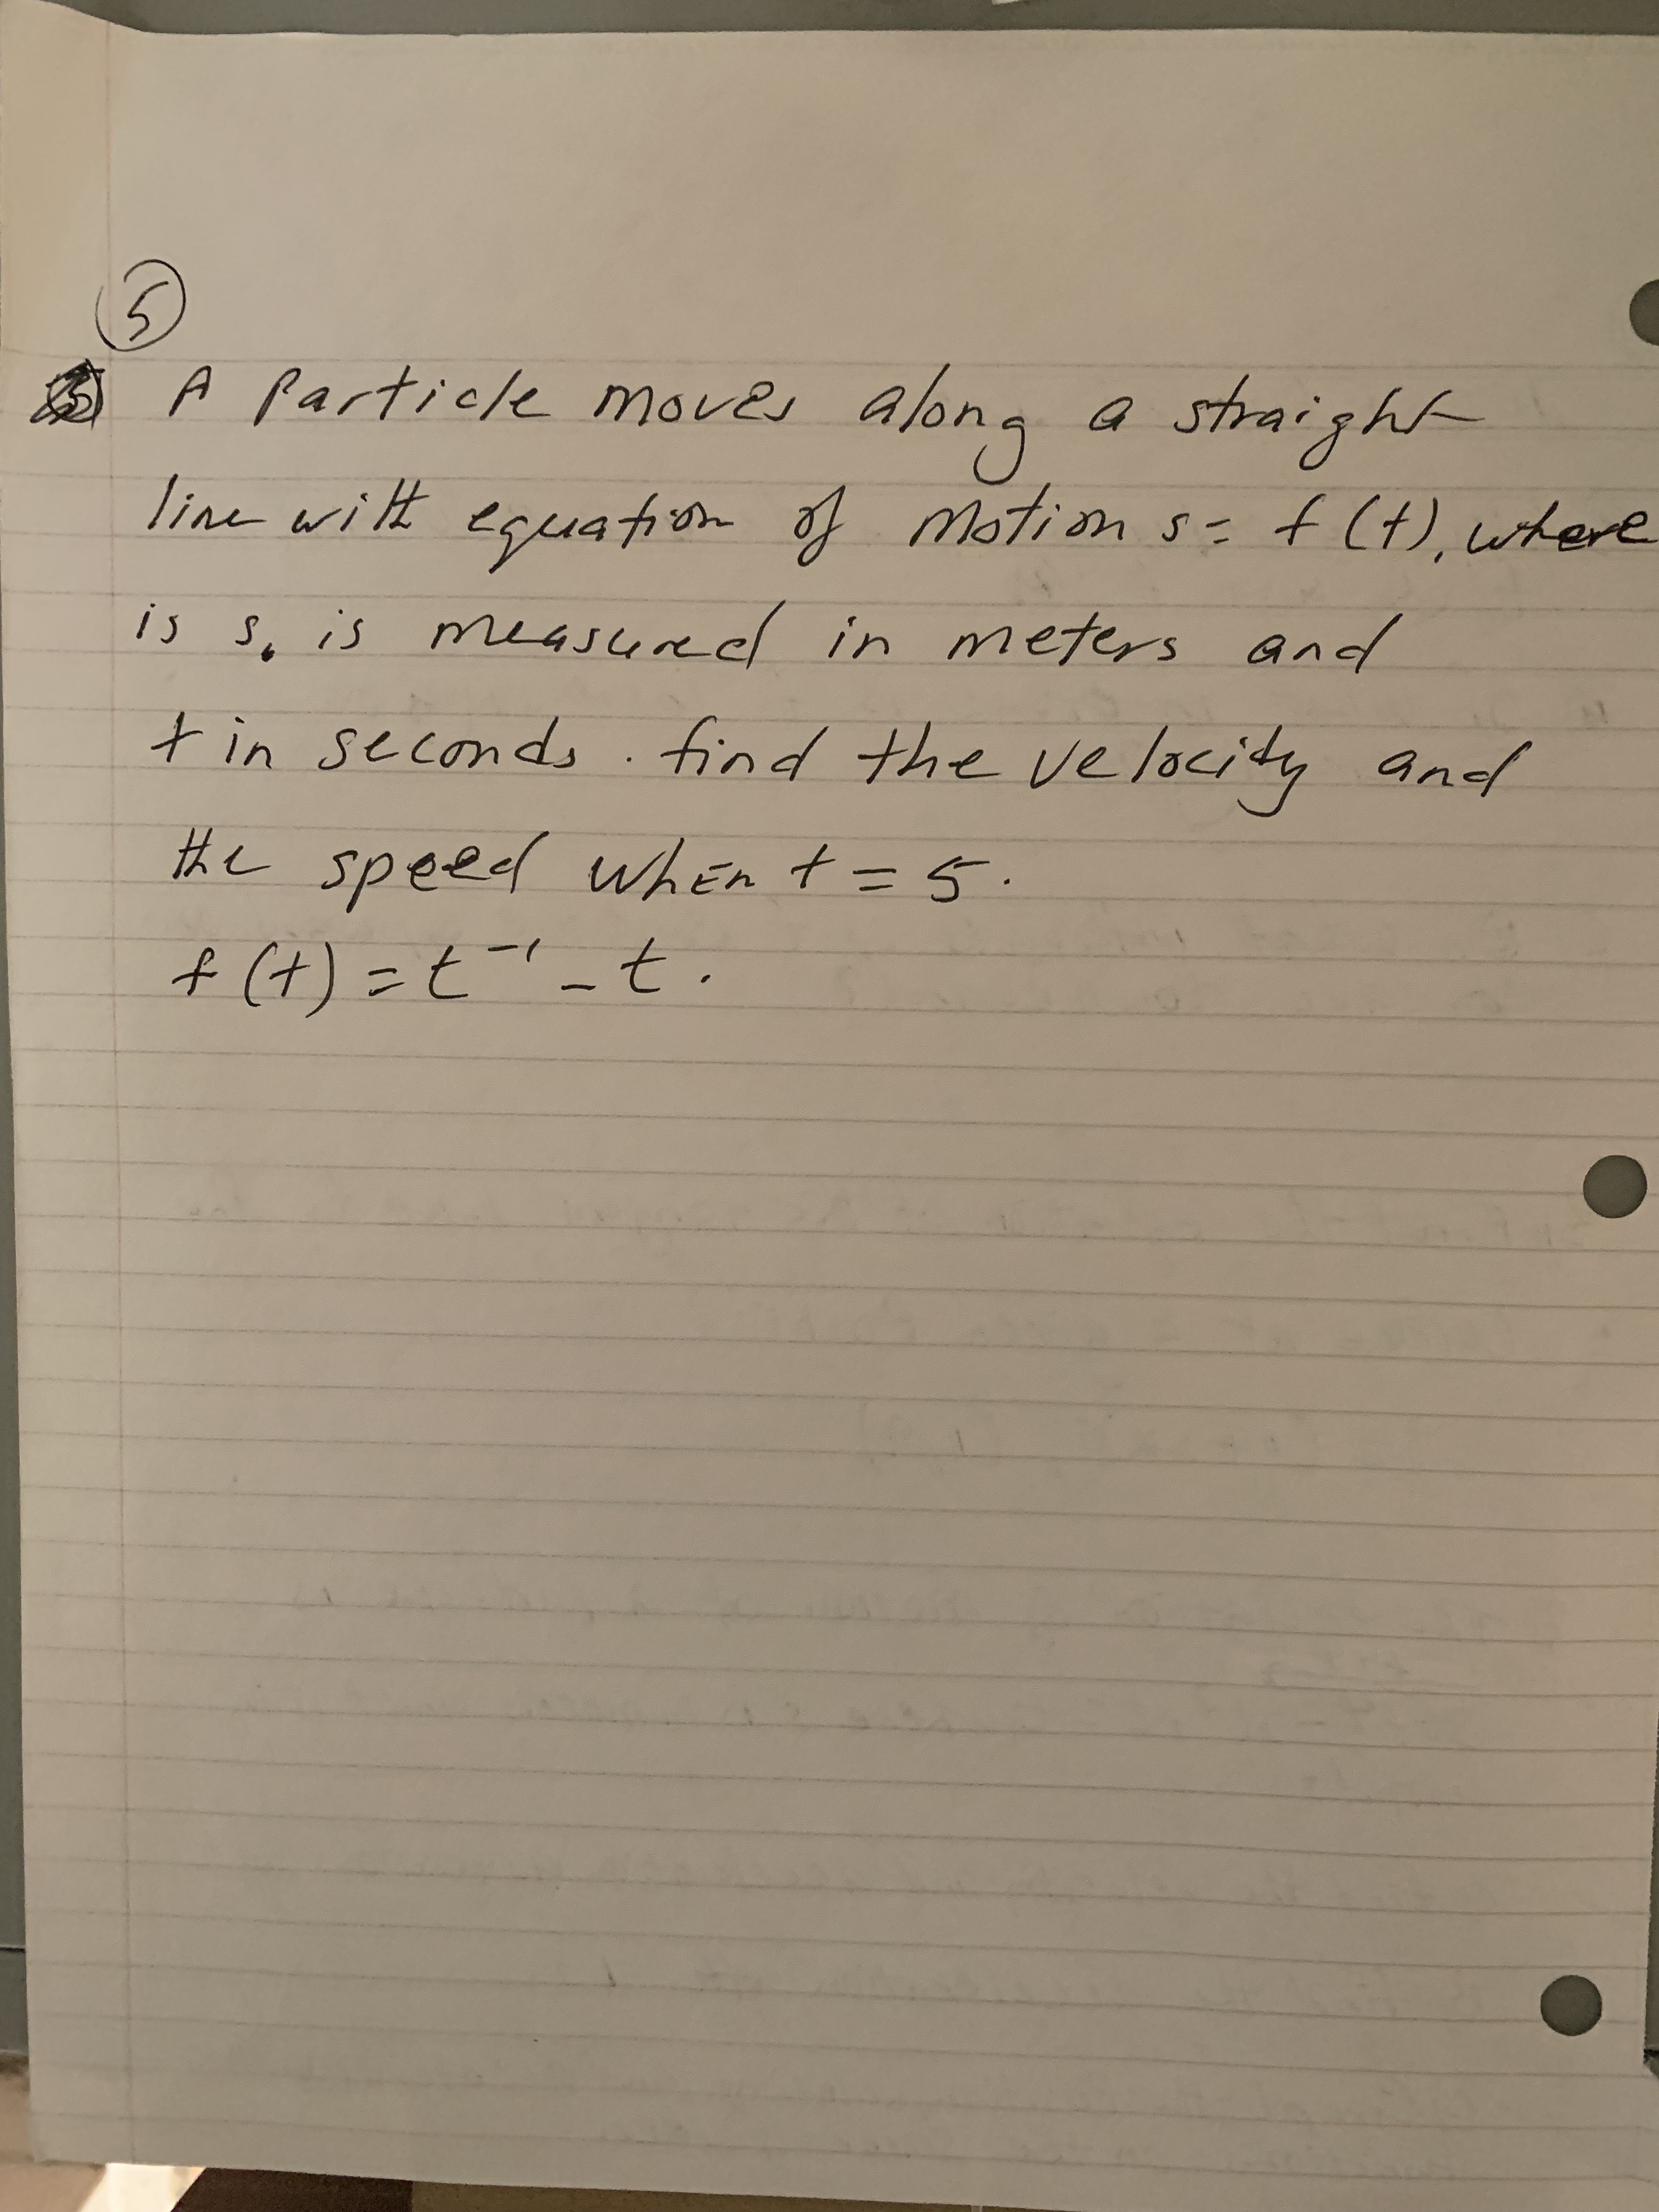 5
A Particle moves along a straight
line with equation of Motion s = f(t), where
is s. is measured in meters and
t in seconds. find the velocity and
the speed when t = 5.
f(t) = t⁻¹ - t.